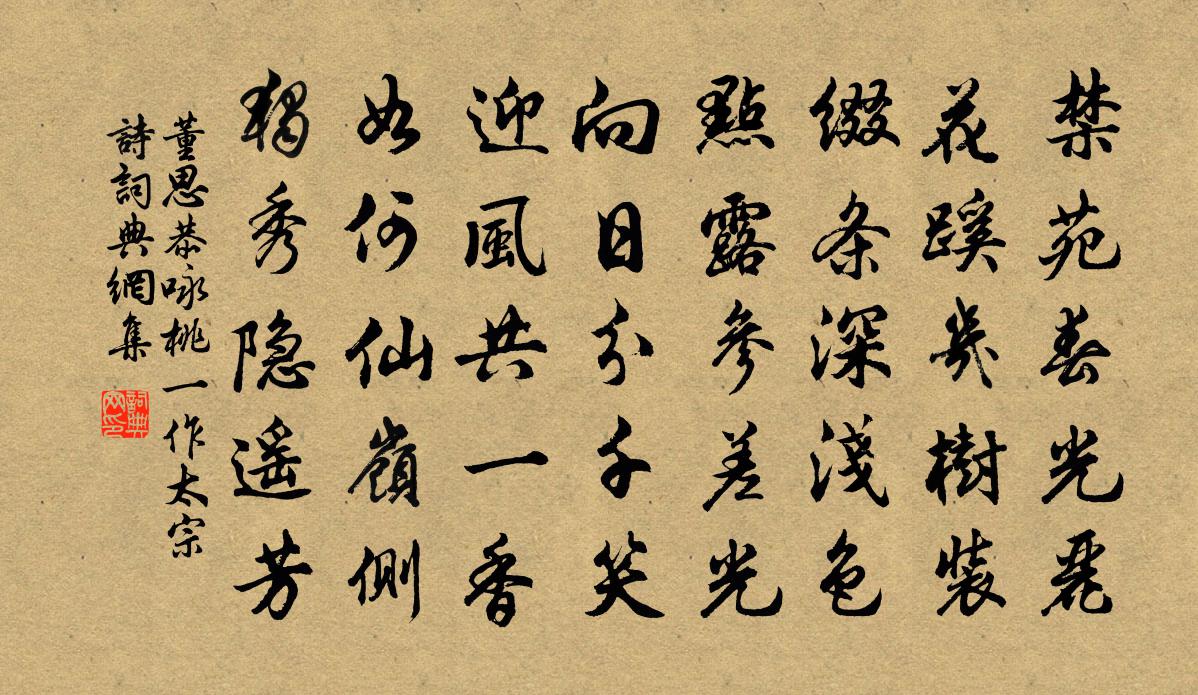 禁苑春光麗
花蹊幾樹裝
綴条深淺色
點露參差光
向日分千笑
迎風共一香
如何仙嶺側
獨秀隐遥芳
董思恭咏桃一作太宗
詩詞典網集
詞典网印